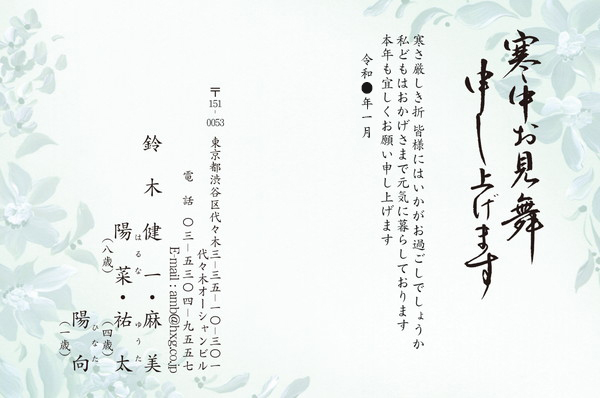 寒中お見舞
申し上げます
寒さ厳しき折 皆様にはいかがお過ごしでしょうか
私どもはおかげさまで元気に暮らしております
本年も宜しくお願い申し上げます
令和●年一月
〒151-0053 東京都渋谷区代々木三-三五-一〇-三〇一
代々木オーシャンビル
電話 〇三-五三〇四-九五五七
E-mail : amb@hxg.co.jp
鈴木 健一・麻美
陽菜・祐太
はるな ゆうた
（八歳） （四歳）
陽向
ひなた
（一歳）